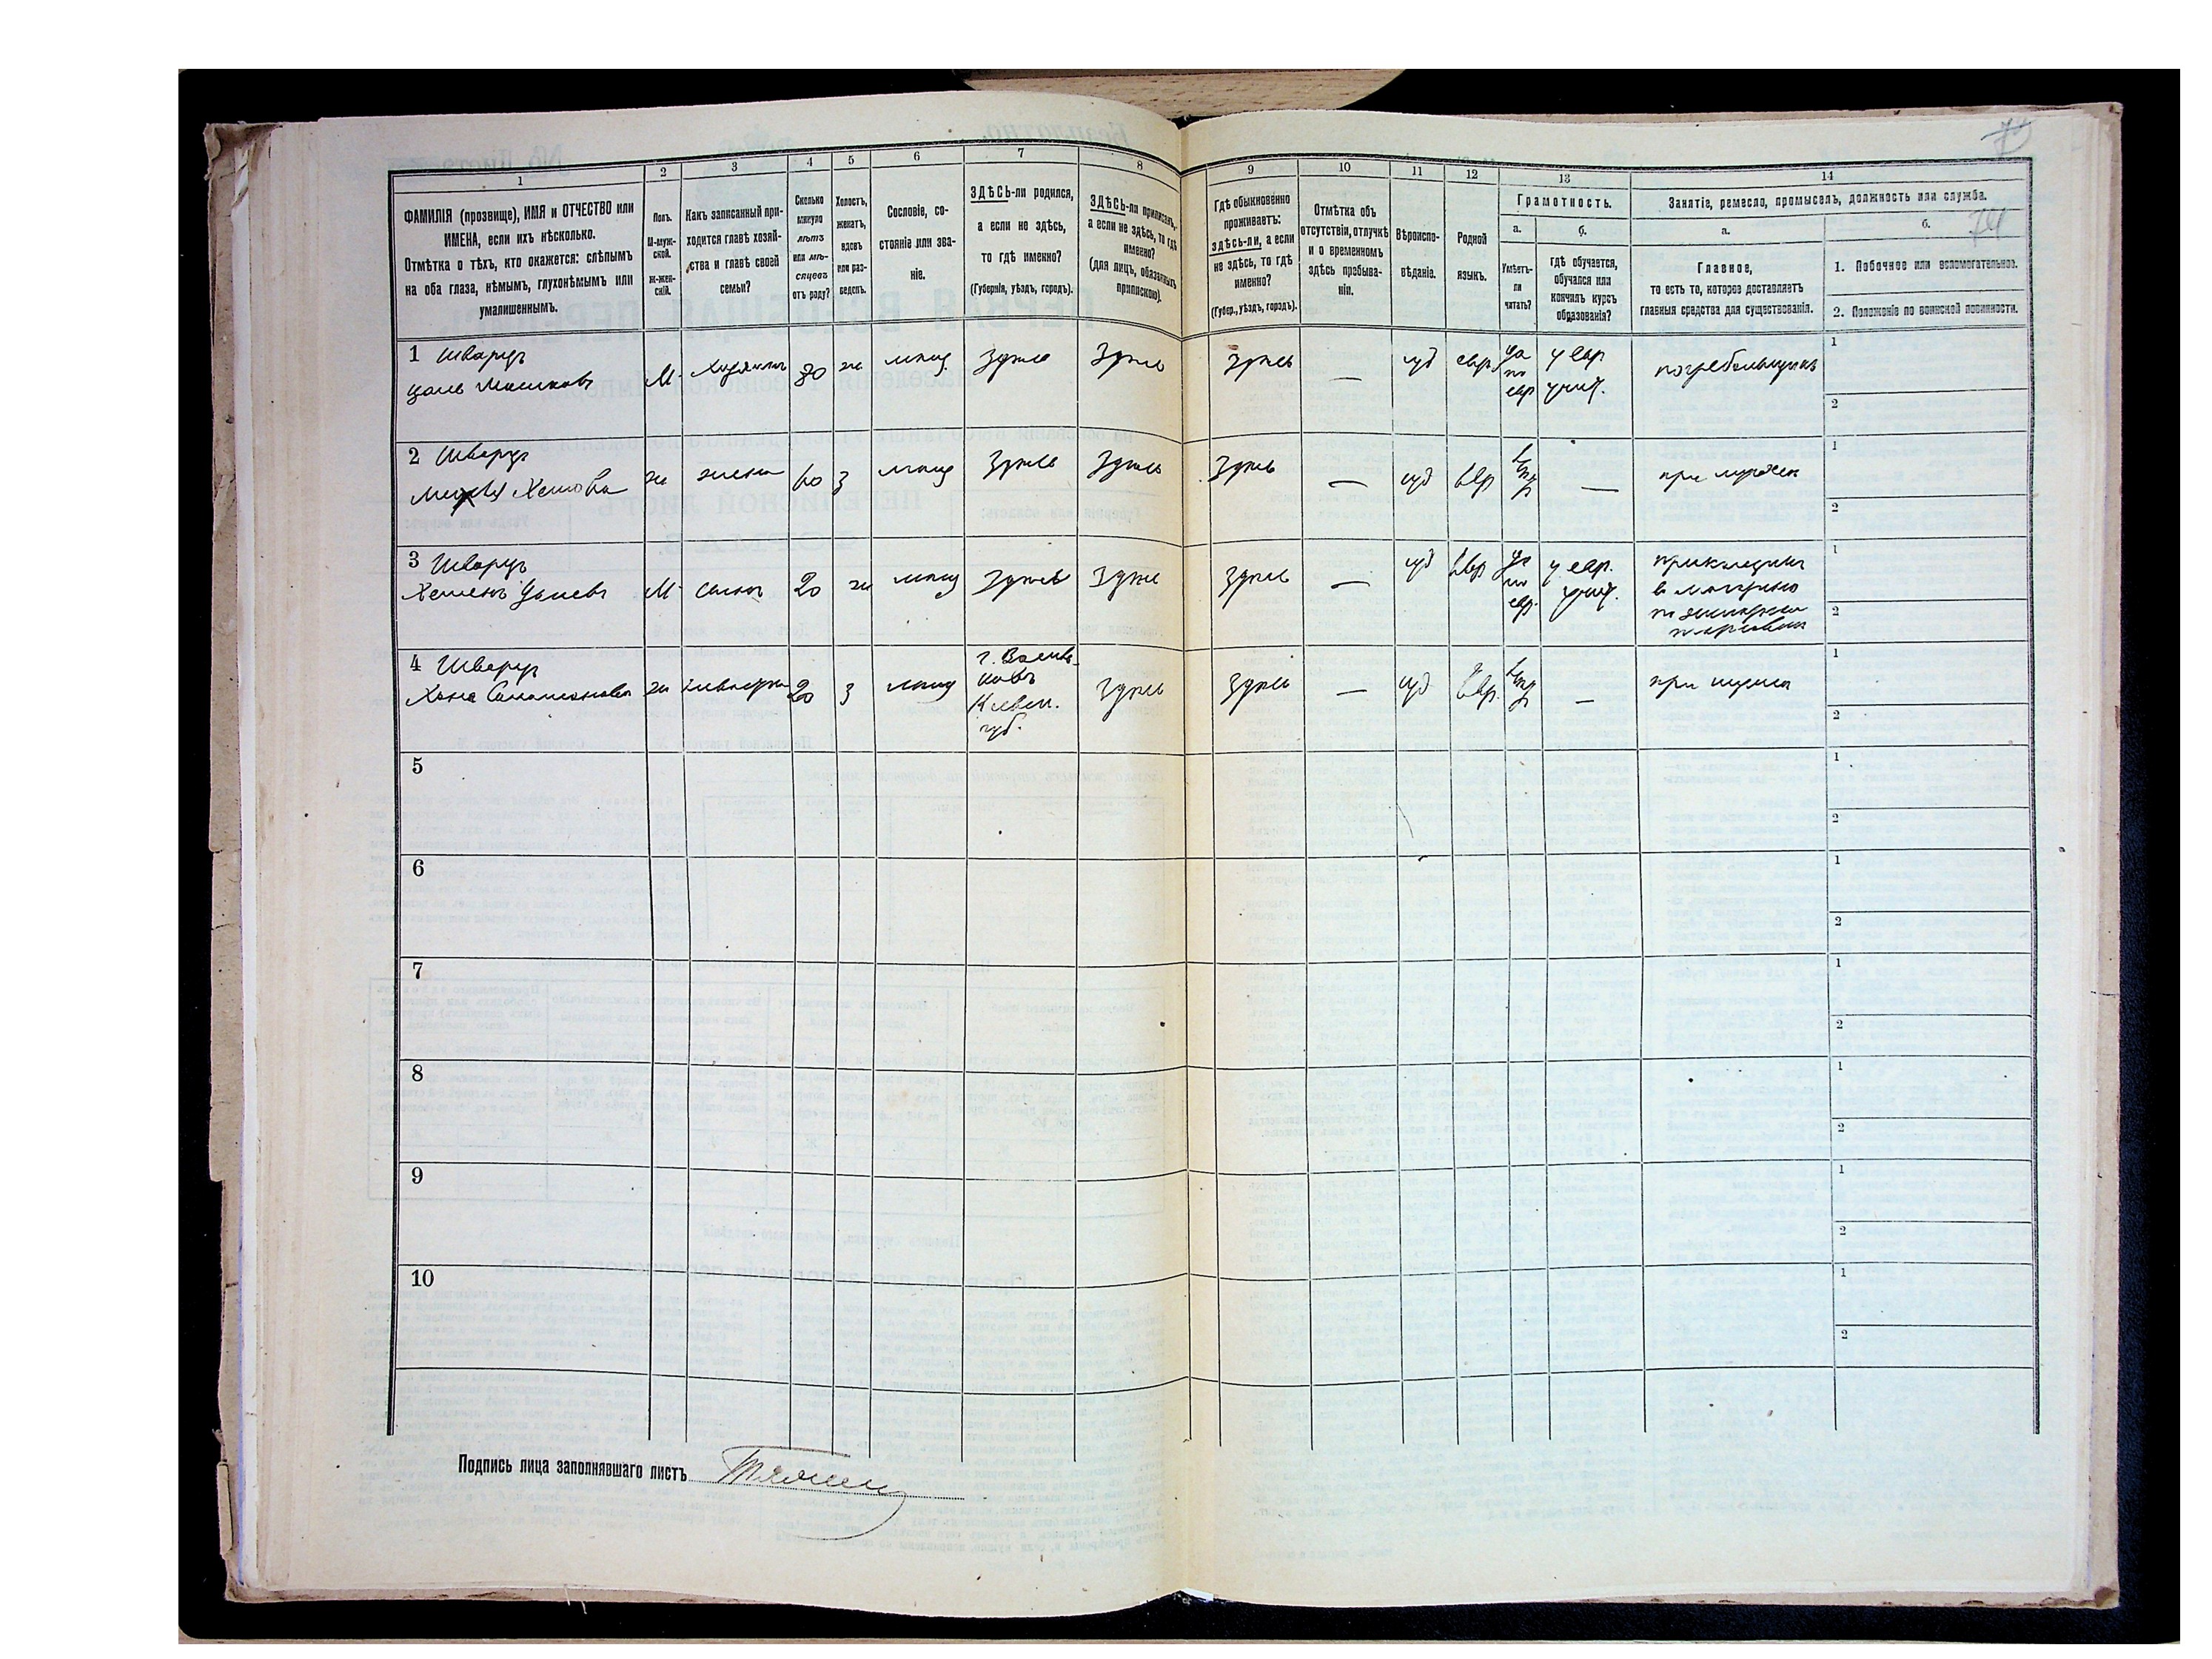 1
2
3
4
5
6
7
8
9
10
11
12
13
14
ФАМИЛІЯ (прозвище), ИМЯ и ОТЧЕСТВО или
ИМЕНА, если ихъ нѣсколько.
Отмѣтка о тѣхъ, кто окажется: слѣпымъ
на оба глаза, нѣмымъ, глухонѣмымъ или
умалишеннымъ.
Полъ.
М-муж-
ской.
ж-жен-
скій.
Какъ записанный при-
ходится главѣ хозяй-
ства и главѣ своей
семьи?
Сколько
минуло
лѣтъ
или мѣ-
сяцевъ
отъ роду?
Холостъ,
женатъ,
вдовъ
или раз-
веденъ.
Сословіе, со-
стояніе или зва-
ніе.
ЗДѢСЬ-ли родился,
а если не здѣсь,
то гдѣ именно?
(Губернія, уѣздъ, городъ).
ЗДѢСЬ-ли приписанъ,
а если не здѣсь, то гдѣ
именно?
(для лицъ, обязанныхъ
припискою).
Гдѣ обыкновенно
проживаетъ:
здѣсь-ли, а если
не здѣсь, то гдѣ
именно?
(Губер., уѣздъ, городъ).
Отмѣтка объ
отсутствіи, отлучкѣ
и о временномъ
здѣсь пребыва-
ніи.
Вѣроиспо-
вѣданіе.
Родной
языкъ.
Грамотность.
а.
Умѣетъ-
ли
читать?
б.
гдѣ обучается,
обучался или
кончилъ курсъ
образованія?
Занятіе, ремесло, промыселъ, должность или служба.
74
а.
Главное,
то есть то, которое доставляетъ
главныя средства для существованія.
б.
1. Побочное или вспомогательное.
2. Положеніе по воинской повинности.
1 Шварцъ
М. 80 ж мѣщ здѣсь здѣсь здѣсь — іуд евр да
по
евр у евр
учит.
1
2
2 Шварцъ
ж жена 60 З мѣщ здѣсь здѣсь здѣсь — іуд евр — при мужѣ
1
2
3 Шварцъ
М. сынъ 20 ж мѣщ здѣсь здѣсь здѣсь — іуд евр да
по
евр. у евр.
учит.
1
2
4 Шварцъ
Хана ж невѣстка 20 З мѣщ г. Василь-
ковъ
Кіевск.
губ. здѣсь здѣсь — іуд евр. — при мужѣ
1
2
5
1
2
6
1
2
7
1
2
8
1
2
9
1
2
10
1
2
Подпись лица заполнявшаго листъ